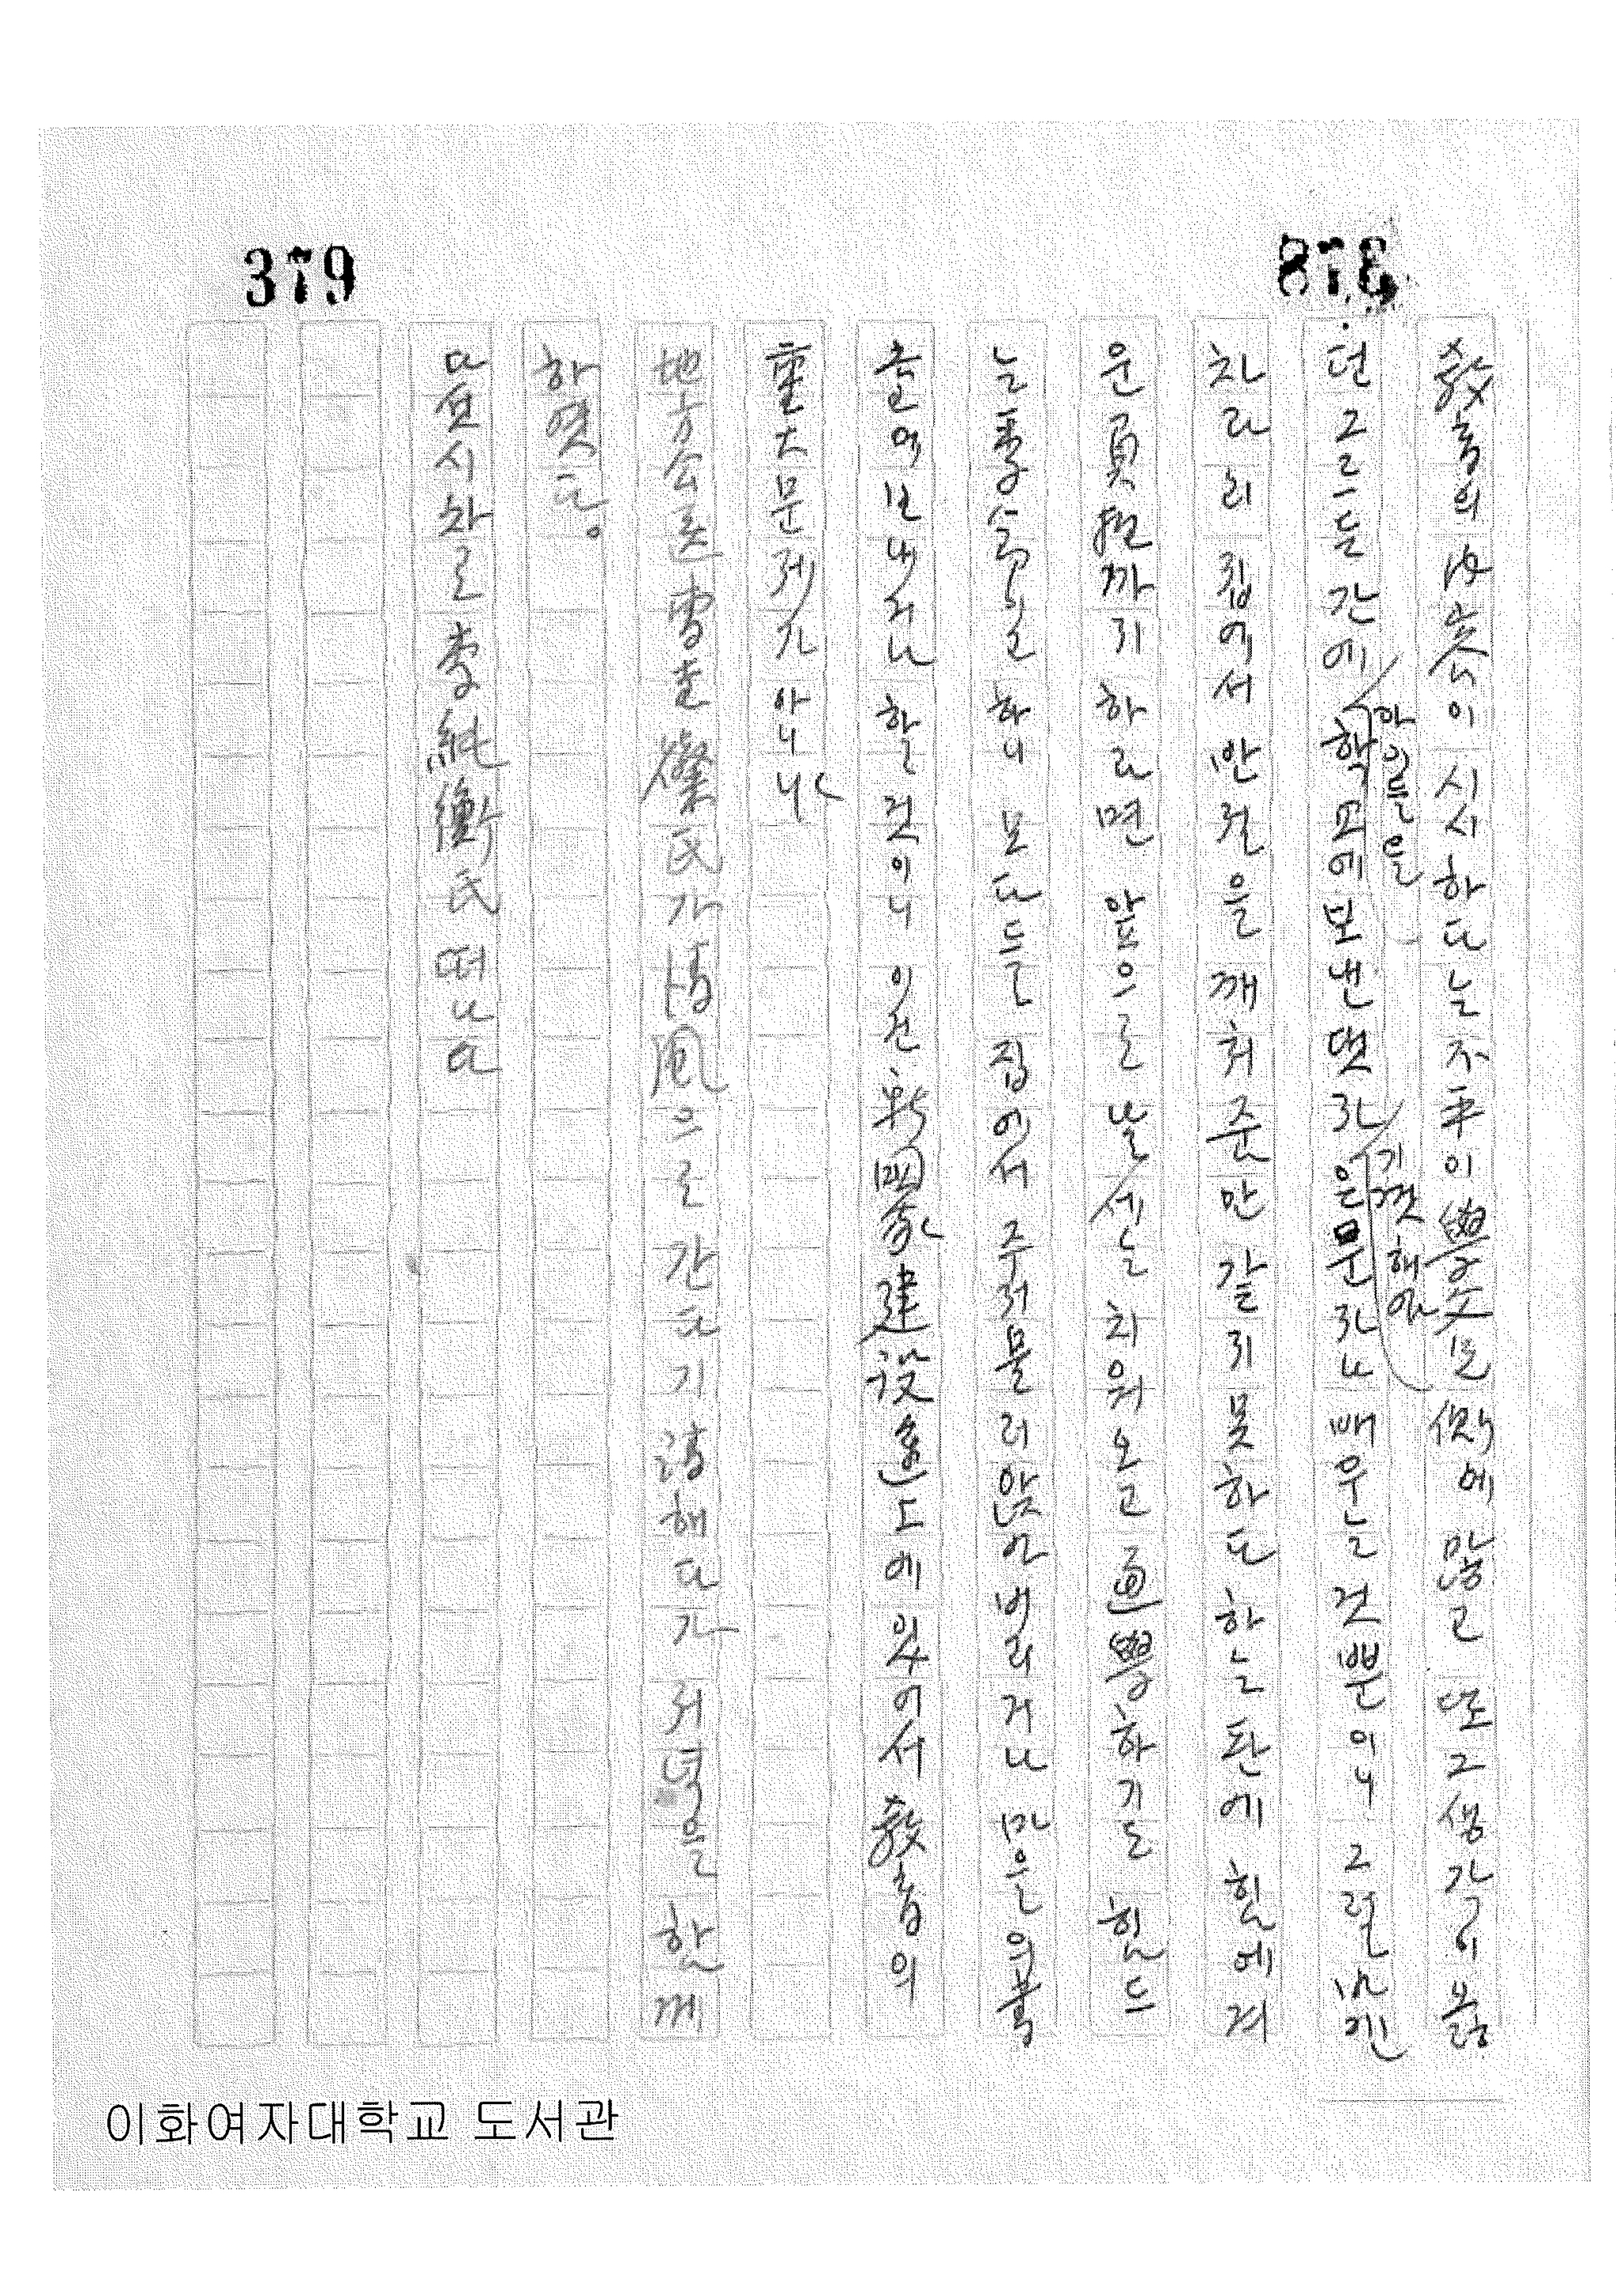 379
378
敎育의 内容이 시시하다는 不平이 學父兄側에 많고 또 그 생각이 옳
던 그르든 간에 아이들을 학교에 보낸댔자 기껏해야 은문자나 배우는 것뿐이니 그럴바겐
차라리 집에서 안젼을 깨쳐준만 같지 못하다 하는 판에 힘에 겨
운 負担까지 하라면 앞으로 날세는 치워오고 通學하기도 힘드
는 季節이고 하니 모다들 집에서 주저물러앉아 버리거나 마을의 書
堂에 보내거나 할것이니 이건 新國家 建設途上에 있어서 敎育의
重大 문제가 아니냐
地方公医 雪 氏가 海風으로 간다기 請해다가 저녁을 함께
하였다。
다섯시차로 李純衡氏 떠나다
이화여자대학교 도서관